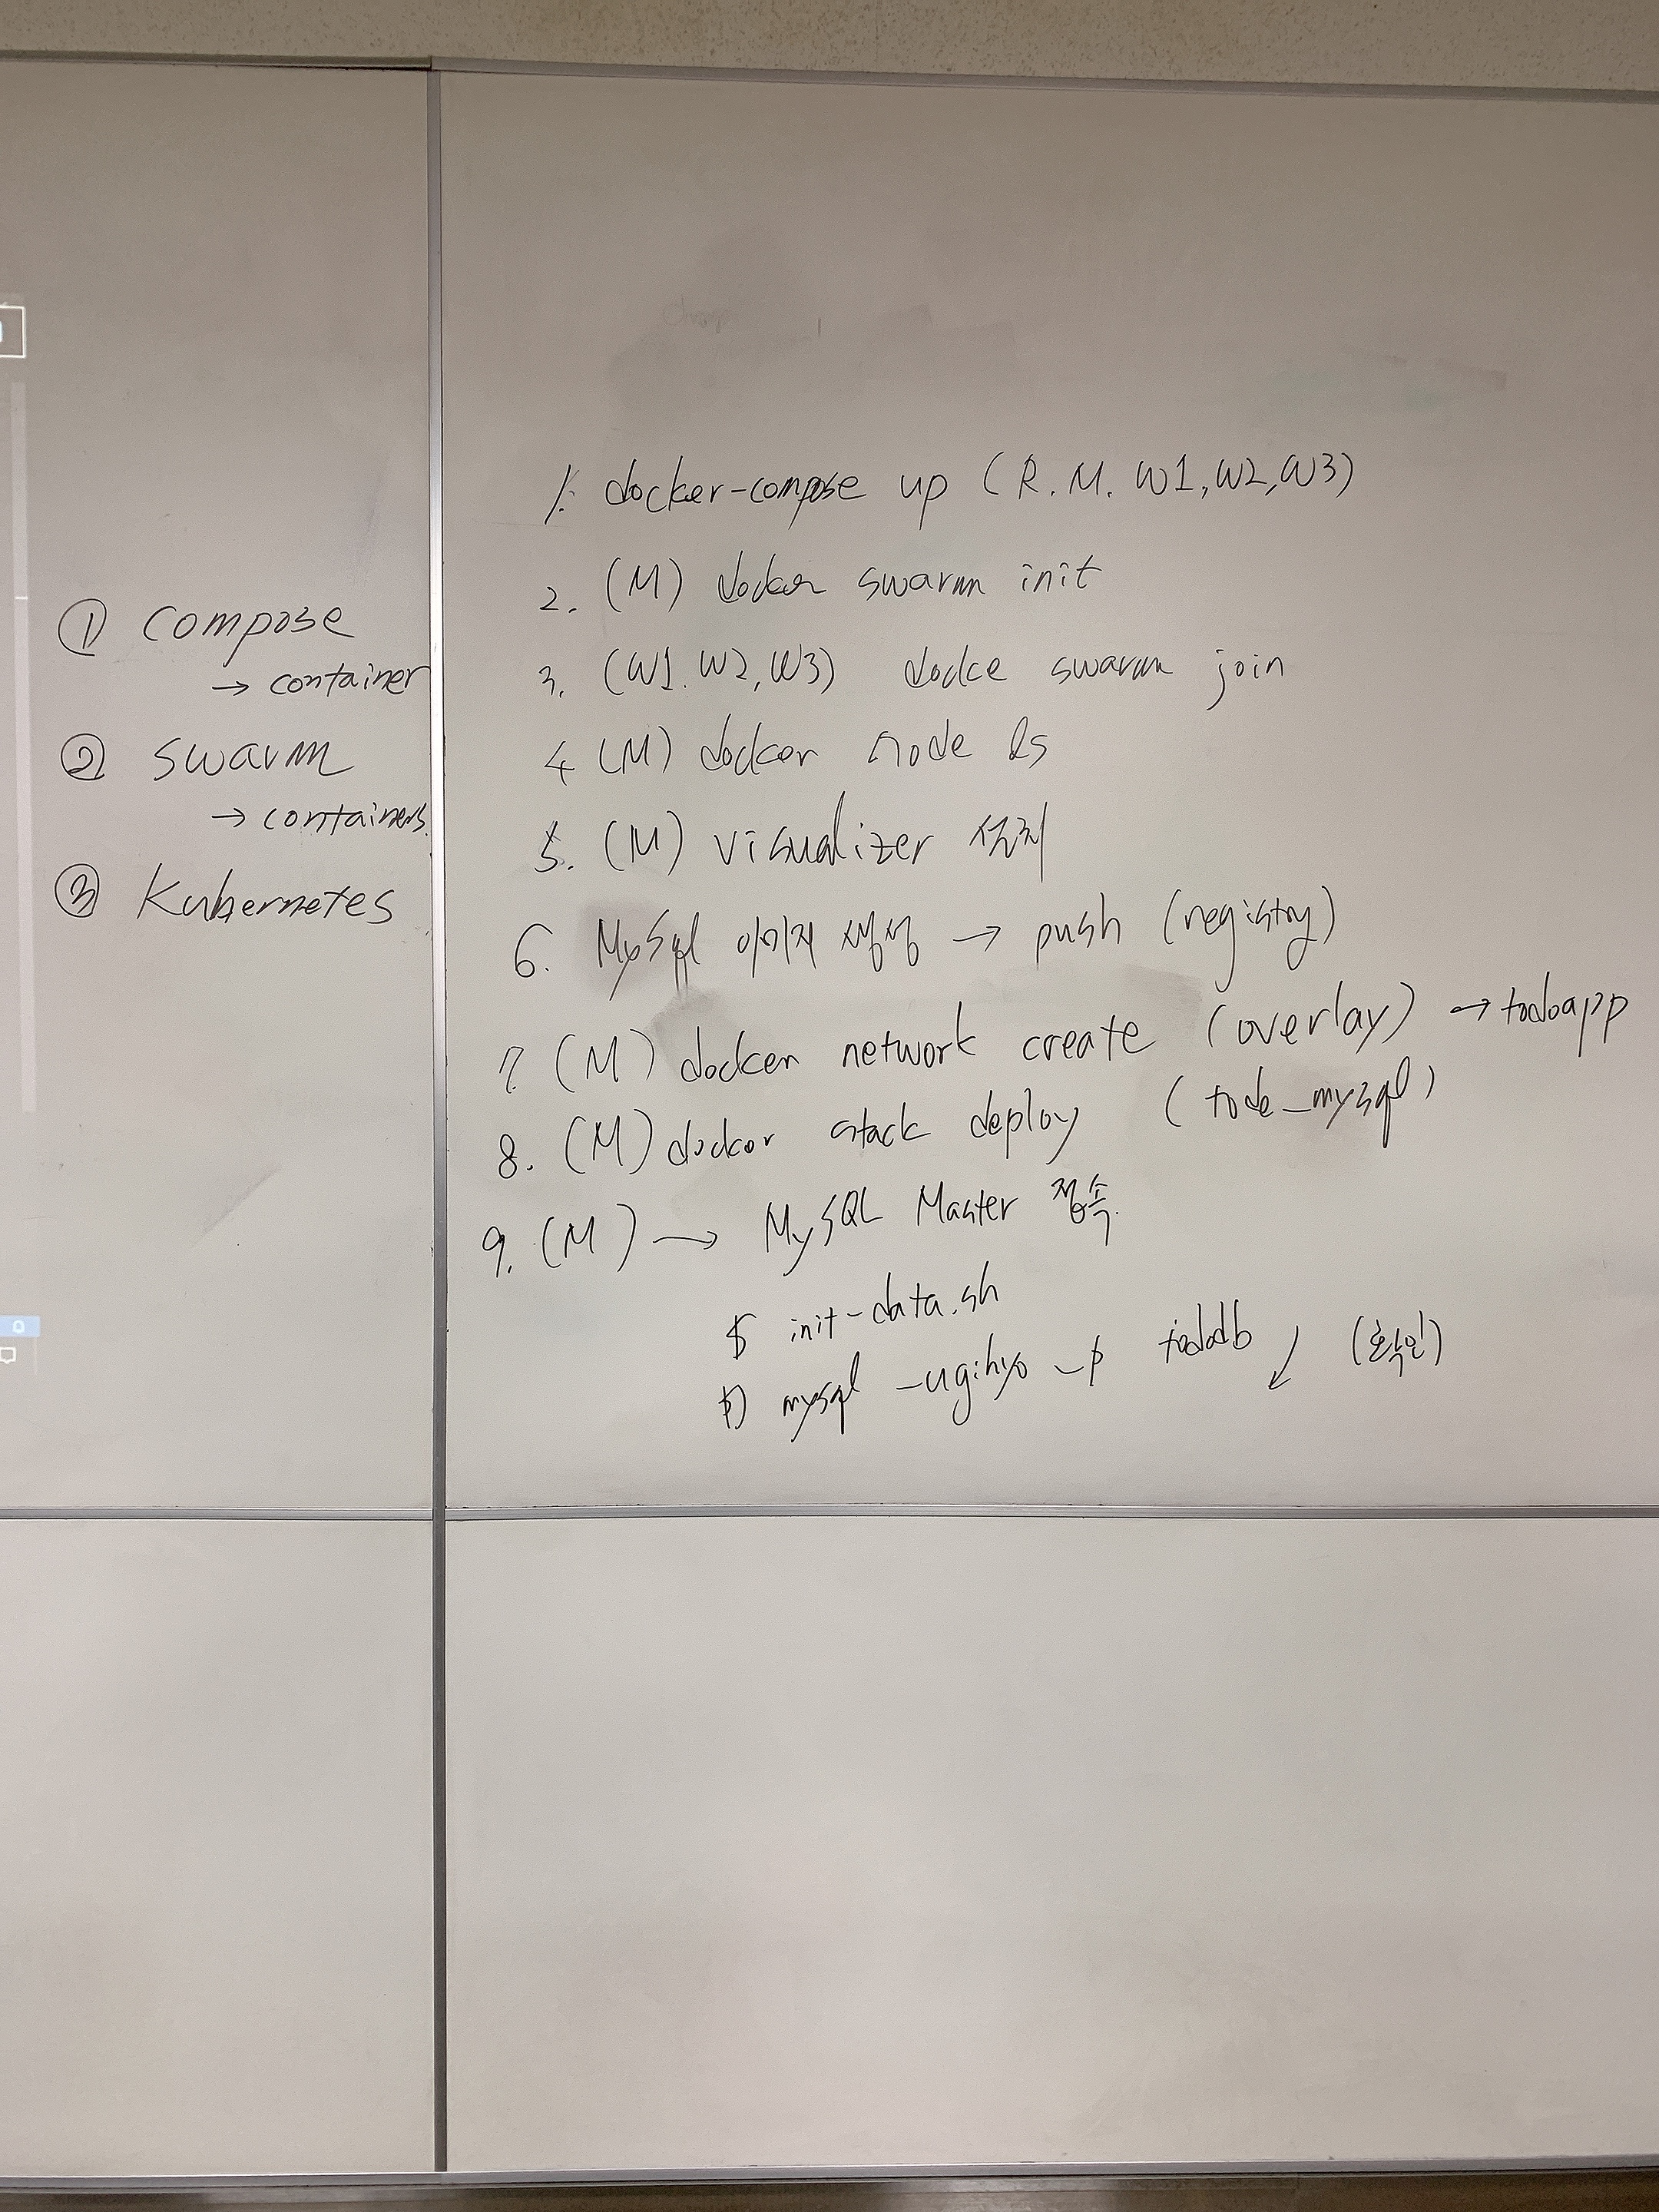 ① compose
→ container
② swarm
→ containers
③ Kubernetes
1. docker-compose up (R. M. W1, W2, W3)
2. (M) docker swarm init
3. (W1. W2, W3) docke swarm join
4 (M) docker node ls
5. (M) visualizer 설치
6. MySql 이미지 생성 → push (registry)
7. (M) docker network create (overlay) → todoapp
8. (M) docker stack deploy (tode_mysql)
9. (M) → MySQL Master 접속.
$ init-data.sh
$) mysql -ugihyo -p tododb ↙ (확인)